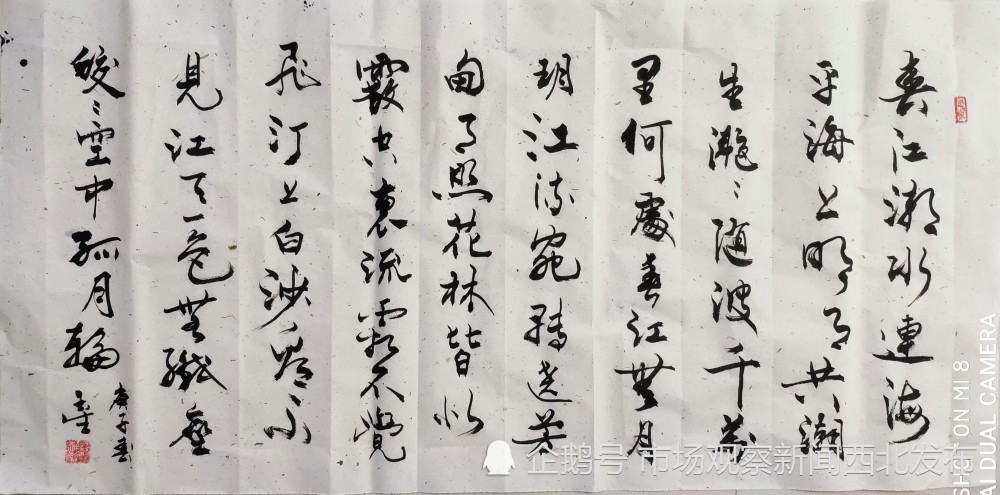 春江潮水連海
平海上明月共潮
生灩〻隨波千萬
里何處春江無月
明江流宛轉遶芳
甸月照花林皆似
霰空裏流霜不覺
飛汀上白沙看不
見江天一色無纖塵
皎〻空中孤月輪
庚子春
企鹅号 市场观察新闻西北发布
SHOT ON MI 8
AI DUAL CAMERA